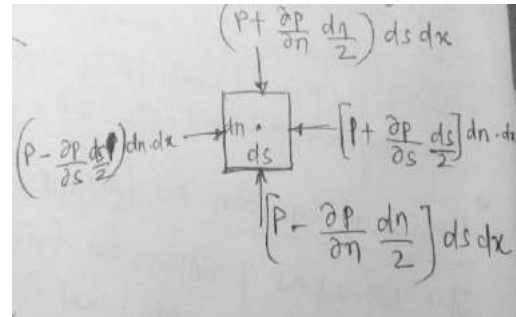 (P + ∂P/∂n dn/2) ds dx
(P - ∂P/∂s ds/2) dn.dx
dn .
ds
[P + ∂P/∂s ds/2] dn.dx
[P - ∂P/∂n dn/2] ds dx